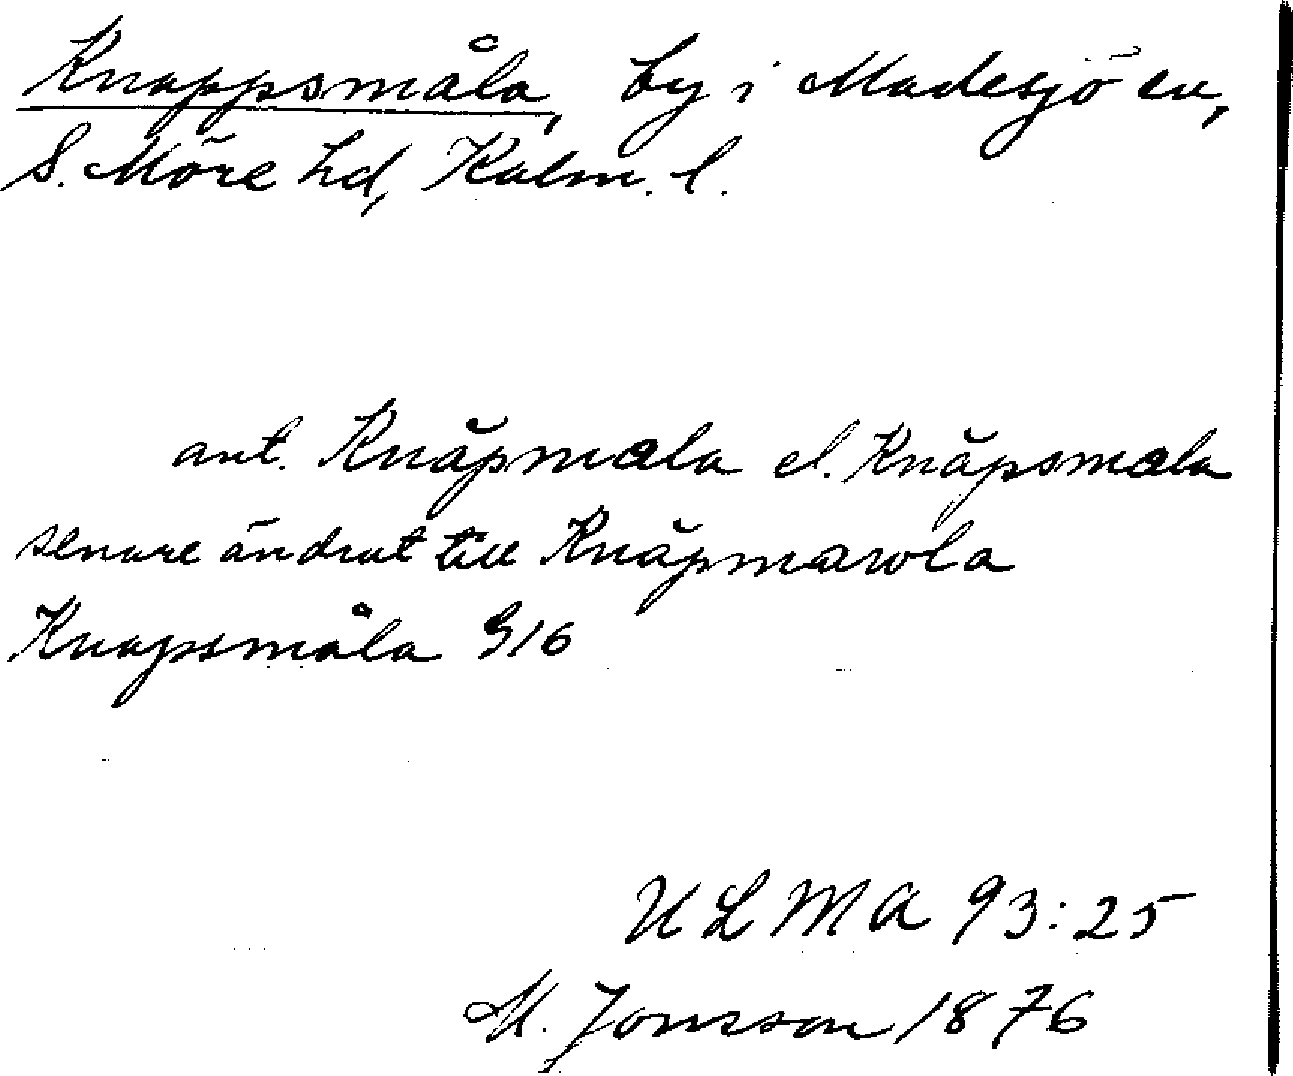 Knappsmåla, by i Madesjö sn,
S. Möre hd, Kalm. l.
ant. Knăpmala el. Knăpsmala
senare ändrat till Knăpmarola
Knapsmåla 316
ULMA 93:25
M. Jonsson 1876